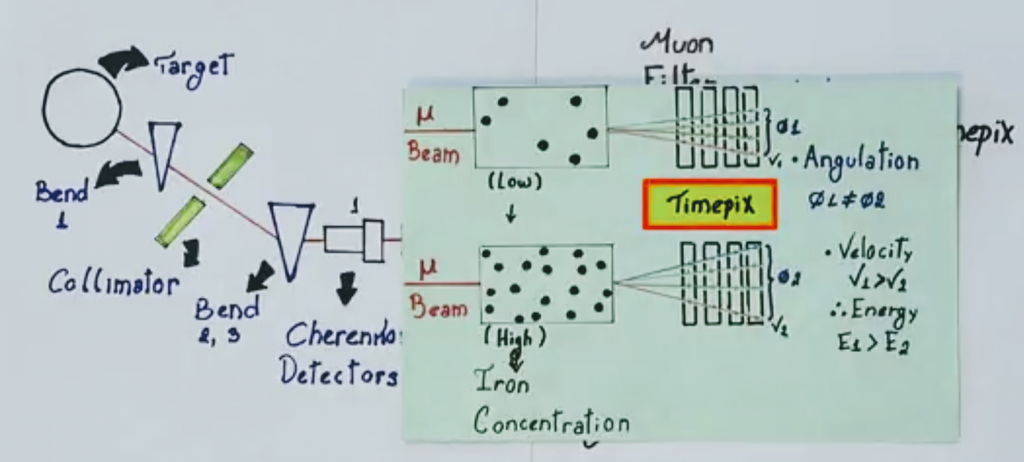 Target
Bend
1
Collimator
Bend
2, 3
1
Cherenko
Detectors
Muon
Filter
mepix
μ
Beam
(Low)
Ø1
V1
• Angulation
Ø1≠Ø2
Timepix
μ
Beam
(High)
Ø2
V2
• Velocity
V1>V2
∴ Energy
E1>E2
Iron
Concentration